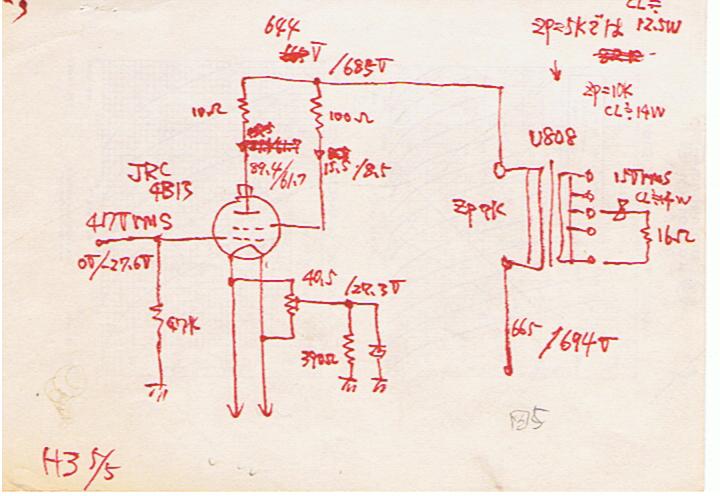 CL≒
Zp=5Kでは 12.5W
Zp=10K
CL≒14W
644
V /685V
10Ω
100Ω
89.4/61.7
15.5/8.5
JRC
4B13
47Vrms
0V/-27.6V
47K
40.5/28.3V
390Ω
U808
15Vrms
CL≒14W
16Ω
665/694V
図5
H3 5/5